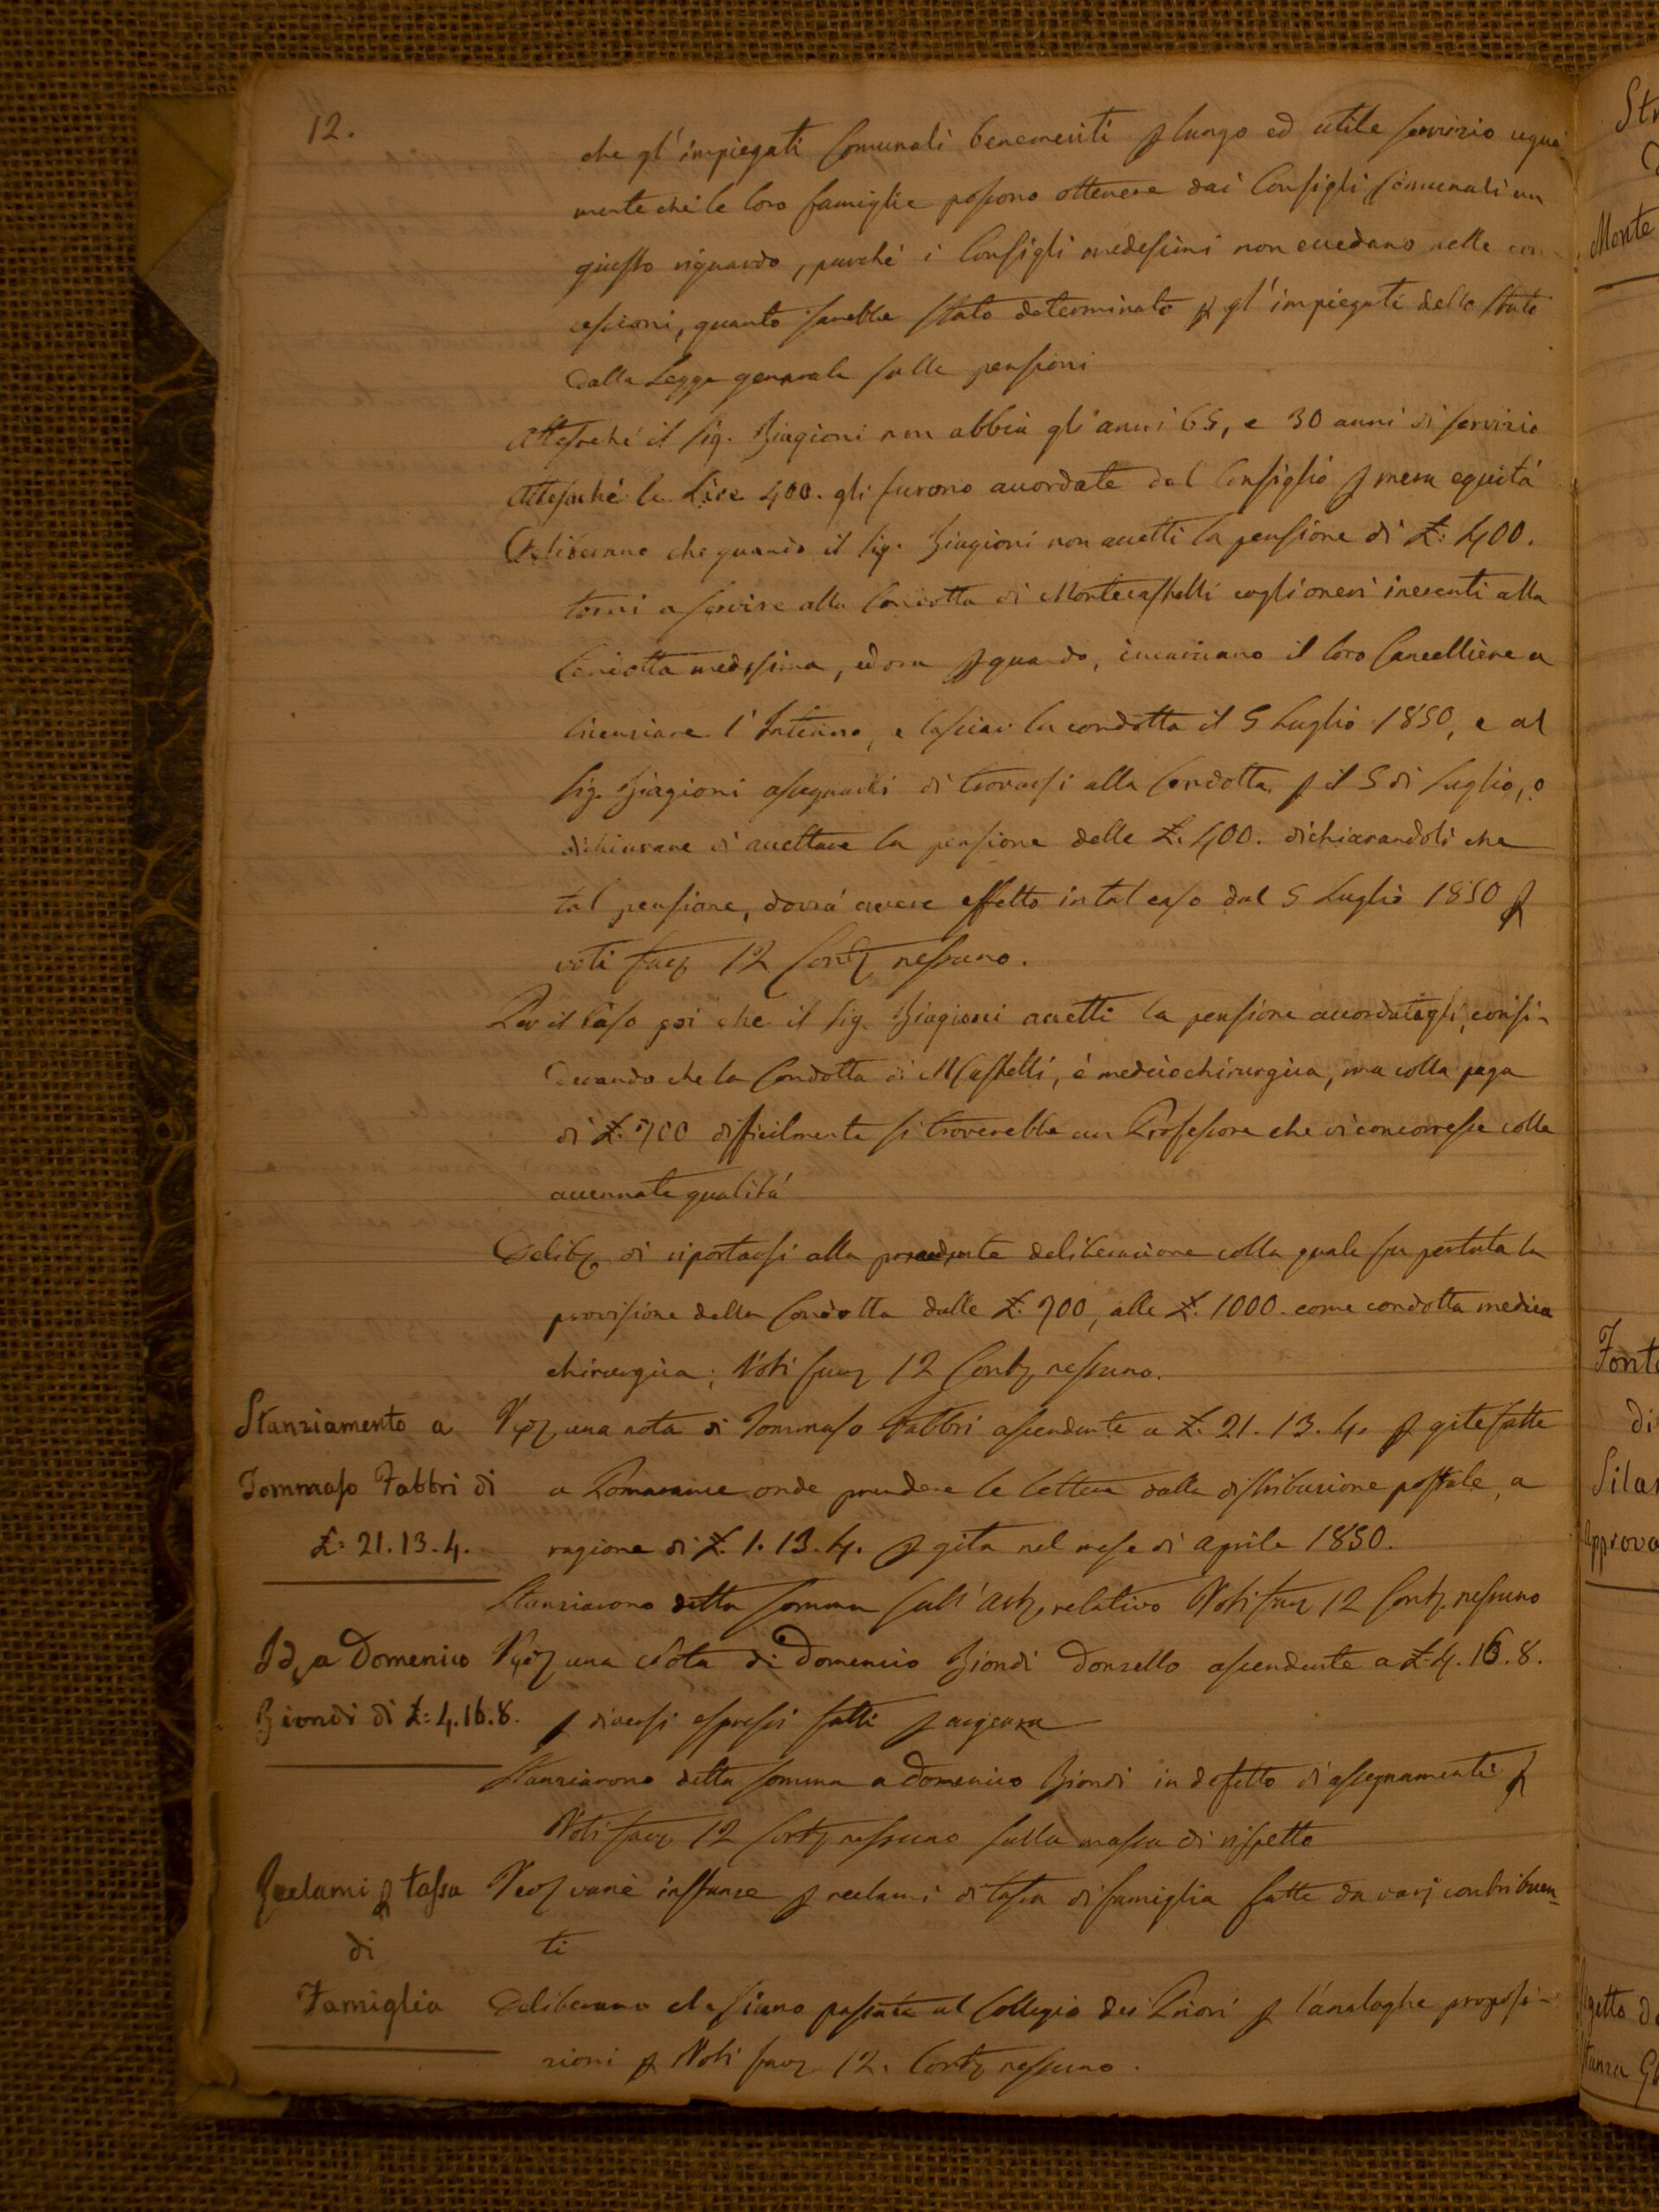 12.
che gl'impiegati Comunali benemeriti p lungo ed utile servizio egual
mente che le loro famiglie possono ottenere dai Consigli Comunali un
giusto riguardo, purché i Consigli medesimi non eccedano nelle con-
cessioni, quanto sarebbe stato determinato p gl'impiegati dello Stato
dalla Legge generale sulle pensioni
Attesoché il Sig. Biagioni non abbia gli anni 65, e 30 anni di servizio
Attesoché le Lire 400. gli furono accordate dal Consiglio p mera equitá
Deliberano che quando il Sig. Biagioni non accetti la pensione di £: 400.
torni a servire alla Condotta di Montecastelli cogli oneri inerenti alla
Condotta medesima, ed ora p quando, incaricano il loro Cancelliere a
licenziare l'Interino, e lasciar la condotta il 5 Luglio 1850, e al
Sig. Biagioni assegnarli di trovarsi alla Condotta p il 5 di Luglio, o
dichiarare di accettare la pensione delle £. 400. dichiarandoli che
tal pensione, dovrá avere effetto in tal caso dal 5 Luglio 1850 p
voti fav 12 Cont nessuno.
Per il Caso poi che il Sig. Biagioni accetti la pensione accordatagli, consi-
derando che la Condotta di MCastelli, é medicochirurgica, ma colla paga
di £. 700 difficilmente si troverebbe un Professore che vi concorresse colle
accennate qualitá
Delib di riportarsi alla precedente deliberazione colla quale fu portata la
provisione della Condotta dalle £. 700, alle £. 1000. come condotta medica
chirurgica; Voti fav 12 Cont nessuno.
Stanziamento a
Tommaso Fabbri di
£: 21.13.4.
Ved una nota di Tommaso Fabbri ascendente a £. 21.13.4. p gite fatte
a Pomarance onde prendere le lettere dalla distribuzione postale, a
ragione di £. 1.13.4. p gita nel mese di Aprile 1850.
Stanziarono detta somma sull'Art relativo Voti fav 12 Cont nessuno
Id a Domenico
Biondi di £: 4.16.8.
Ved una Nota di Domenico Biondi Donzello ascendente a £ 4.16.8.
p diversi espressi fatti p urgenza
Stanziarono detta somma a Domenico Biondi in difetto di assegnamenti p
Voti fav 12 Cont nessuno sulla massa di rispetto
Reclami p tassa
di
Famiglia
Ved varie instanze p reclami di tassa di famiglia fatte da varj contribuen-
ti
Deliberano che siano passate al Collegio dei Priori p l'analoghe proposi-
zioni p Voti fav 12. Cont nessuno.
Monte
Font
di